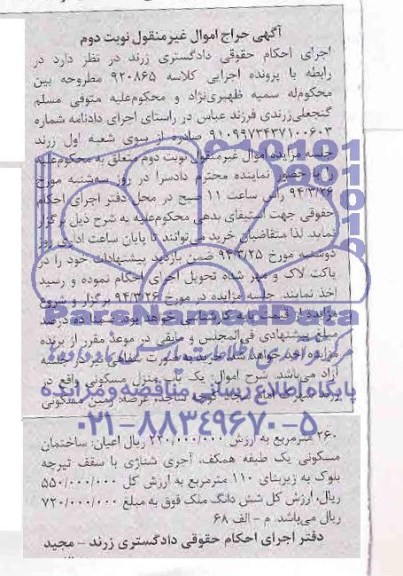 آگهی حراج اموال غیرمنقول نوبت دوم
اجرای احکام حقوقی دادگستری زرند در نظر دارد در
رابطه با پرونده اجرایی کلاسه ۹۲۰۸۶۵ مطروحه بین
محکوم‌له سمیه ظهیری‌نژاد و محکوم‌علیه متوفی مسلم
گنجعلی‌زرندی فرزند عباس در راستای اجرای دادنامه شماره
۹۱۰۹۹۷۳۴۳۷۱۰۰۶۰۳ صادره از سوی شعبه اول زرند
جلسه مزایده اموال غیرمنقول نوبت دوم متعلق به محکوم‌علیه
را با حضور نماینده محترم دادسرا در روز سه‌شنبه مورخ
۹۴/۳/۲۶ راس ساعت ۱۱ صبح در محل دفتر اجرای احکام
حقوقی جهت استیفای بدهی محکوم‌علیه به شرح ذیل برگزار
نماید. لذا متقاضیان خرید می‌توانند تا پایان ساعت اداری روز
دوشنبه مورخ ۹۴/۳/۲۵ ضمن بازدید پیشنهادات خود را در
پاکت لاک و مهر شده تحویل اجرای احکام نموده و رسید
اخذ نمایند. جلسه مزایده در مورخ ۹۴/۳/۲۶ برگزار و شروع
مزایده از قیمت پایه کارشناسی خواهد بود. ده درصد
مبلغ پیشنهادی فی‌المجلس و مابقی در موعد مقرر از برنده
مزایده اخذ خواهد شد
آزاد می‌باشد. شرح اموال: یک باب منزل مسکونی واقع در
زرند
ParsNamadData
پایگاه اطلاع رسانی مناقصه و مزایده
۰۲۱-۸۸۳۴۹۶۷۰-۵
۲۶۰ مترمربع به ارزش ۲۲۰/۰۰۰/۰۰۰ ریال اعیان: ساختمان
مسکونی یک طبقه همکف، آجری شناژی با سقف تیرچه
بلوک به زیربنای ۱۱۰ مترمربع به ارزش کل ۵۵۰/۰۰۰/۰۰۰
ریال، ارزش کل شش دانگ ملک فوق به مبلغ ۷۲۰/۰۰۰/۰۰۰
ریال می‌باشد. م - الف ۶۸
دفتر اجرای احکام حقوقی دادگستری زرند – مجید